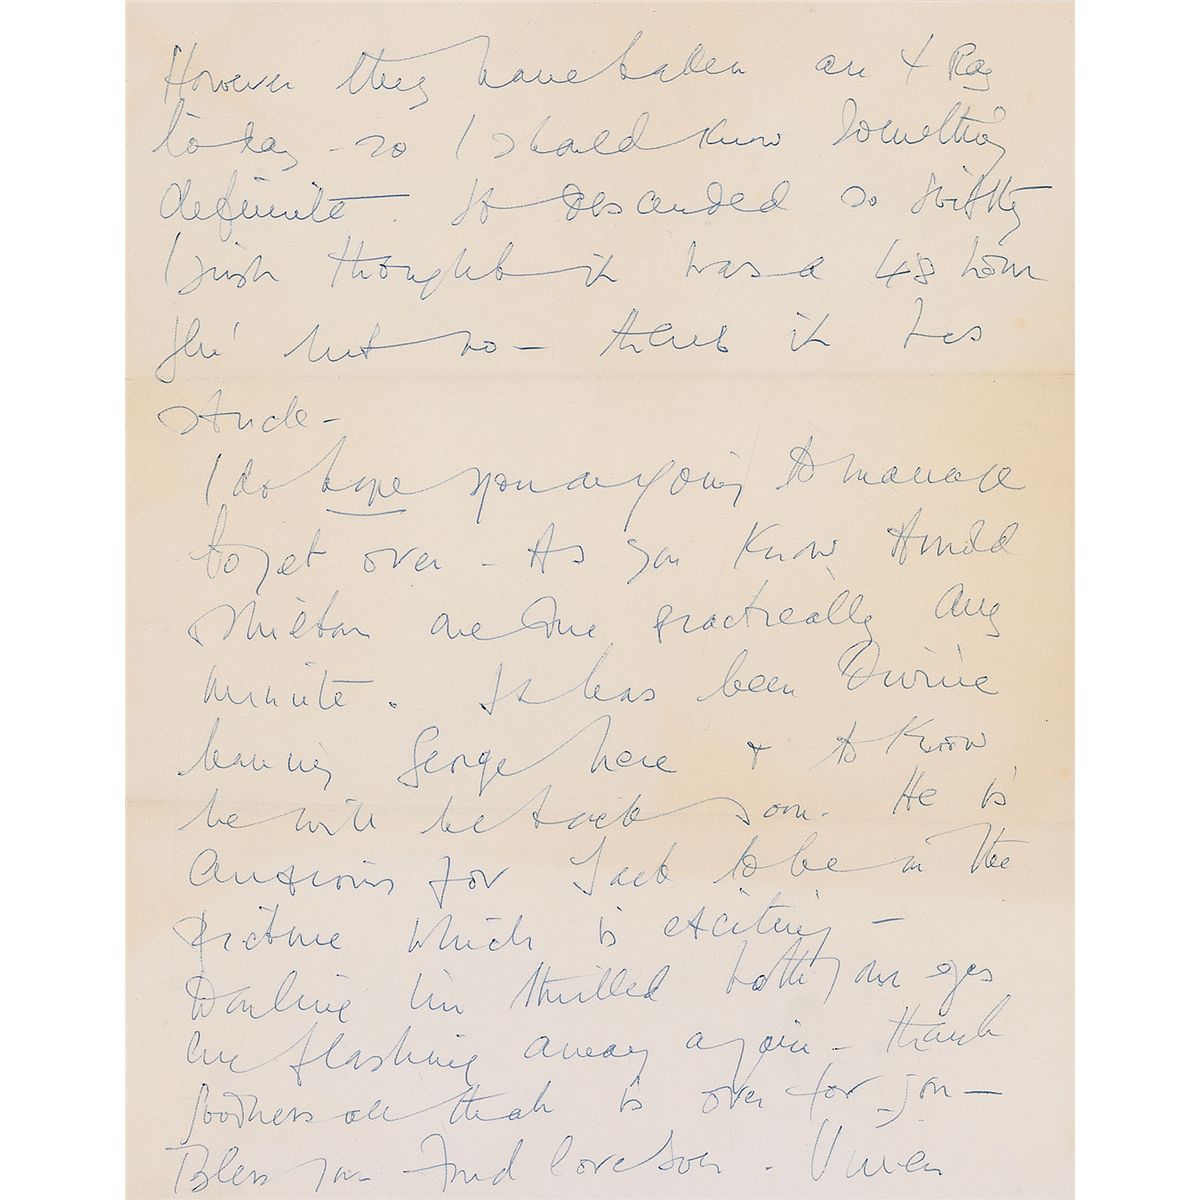 However they have taken an X Ray
today - so I should know something
definite. It descended so swiftly
I just thought it was a 48 hour
flu' but no - there it has
stuck -
I do hope you are going to manage
to get over - As you know
Milton are due practically any
minute. It has been Divine
having George here & to know
he will be back soon. He is
anxious for Jack to be in the
picture which is exciting -
Darling I'm thrilled both your eyes
are flashing away again - thank
goodness all that is over for you -
Bless you fond love Vivien